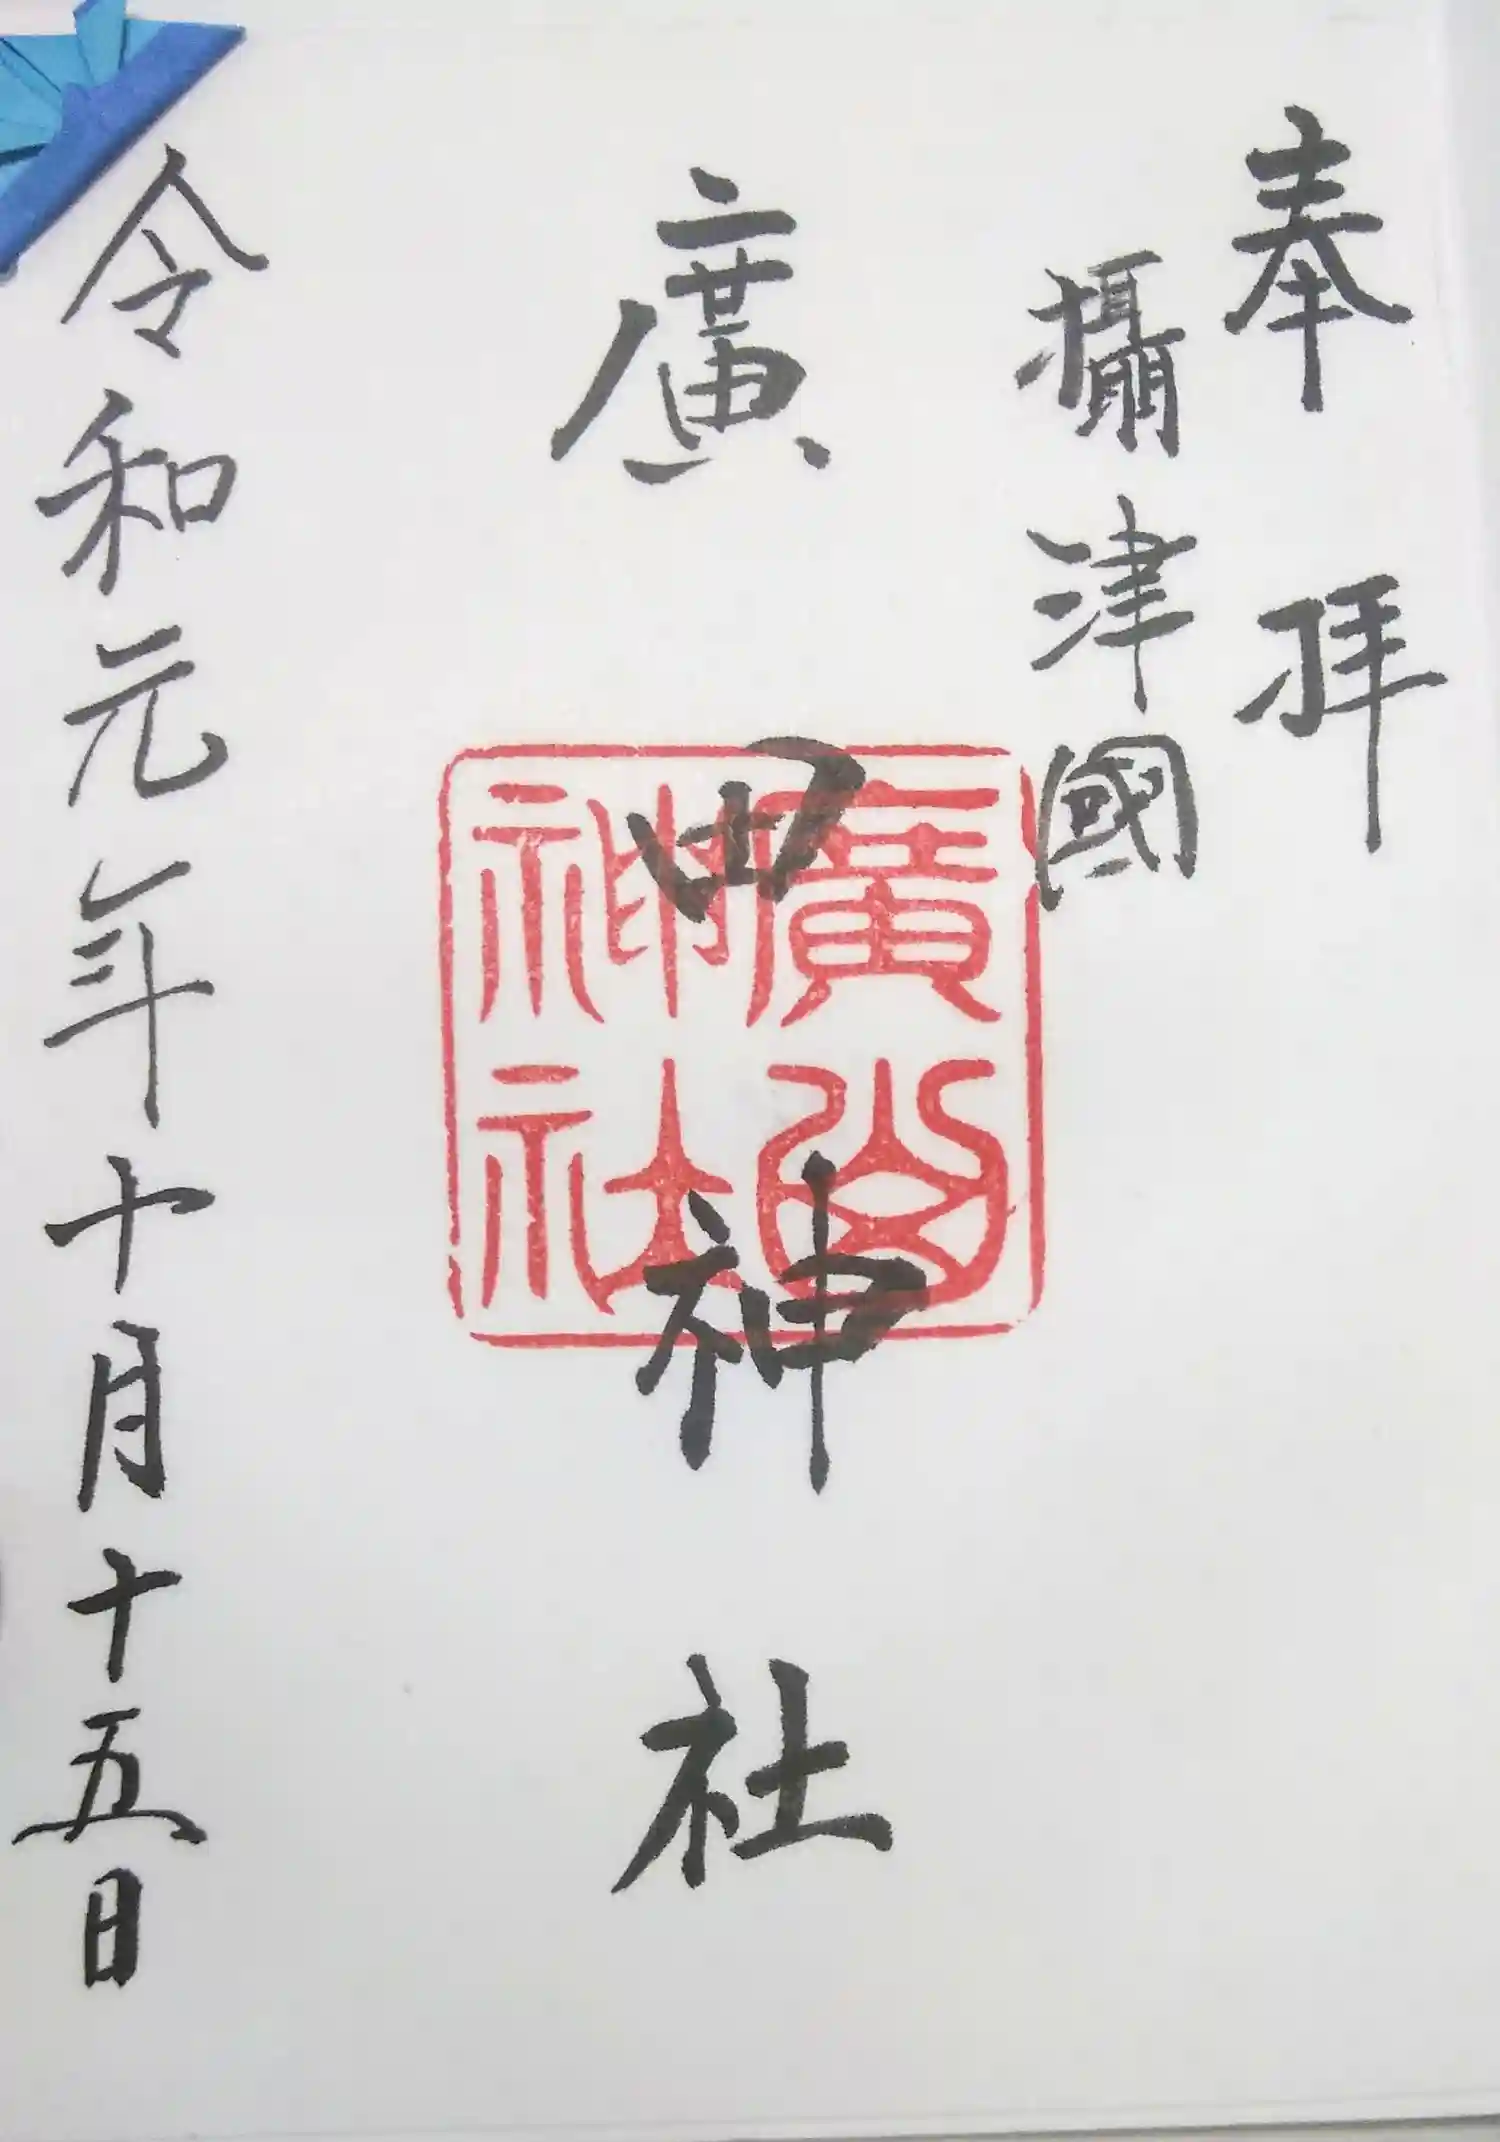 奉拝
攝津國
廣田神社
廣
神社
令和元年十月十五日